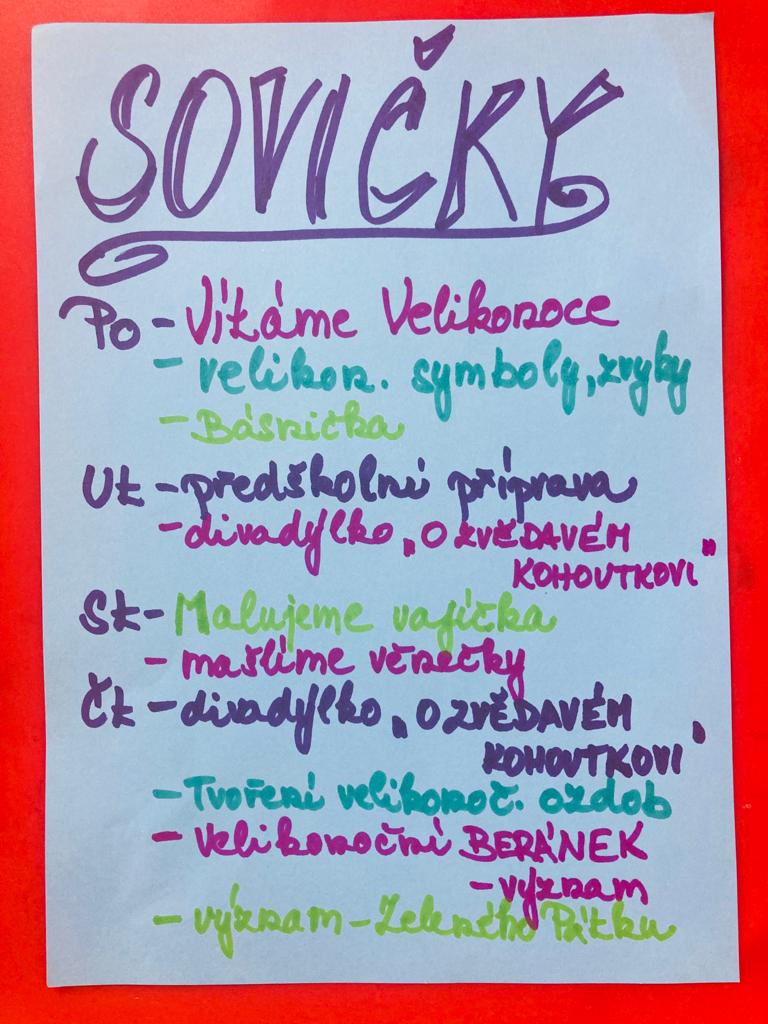 SOVIČKY
Po - Vítáme Velikonoce
- velikon. symboly, zvyky
- Básnička
Út - předškolní příprava
- divadýlko „O ZVĚDAVÉM
KOHOUTKOVI"
St - Malujeme vajíčka
- mašlíme věnečky
Čt - divadýlko „O ZVĚDAVÉM
KOHOUTKOVI"
- Tvoření velikonoč. ozdob
- Velikonoční BERÁNEK
- význam
- význam - Zeleného Pátku